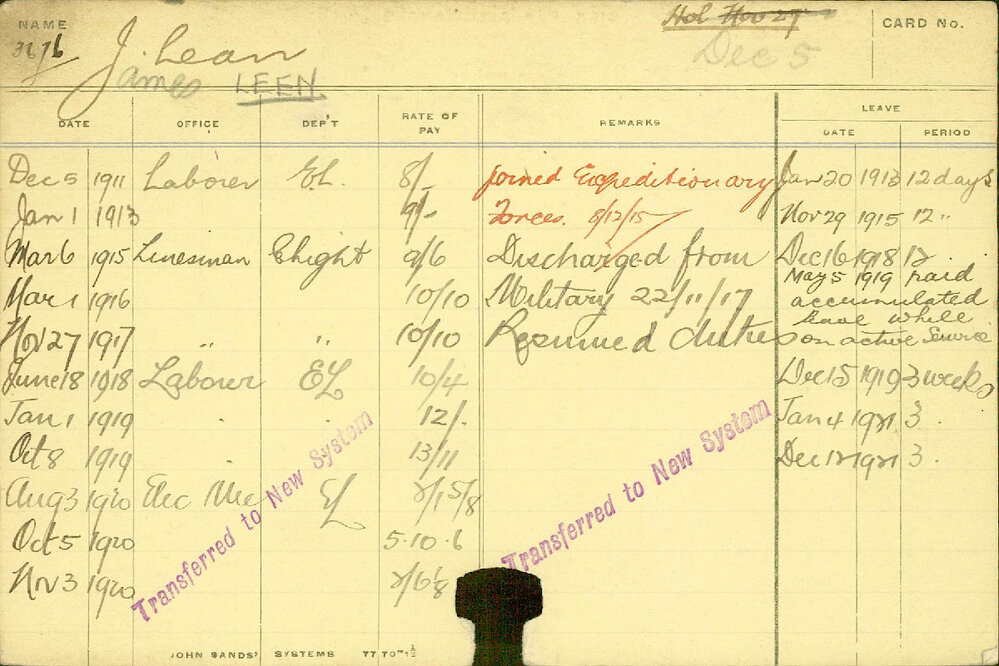 NAME
J. Lean
James LEEN
Hol Nov 27
Dec 5
CARD No.
DATE OFFICE DEP'T RATE OF PAY REMARKS LEAVE
DATE PERIOD
Dec 5 1911 Laborer EL. 8/- Joined Expeditionary Jan 20 1913 12 days
Jan 1 1913 9/- Forces. 8/12/15 Nov 29 1915 12 "
Mar 6 1915 Linesman E light 9/6 Discharged from Dec 16 1918 12
Mar 1 1916 10/10 Military 22/11/17 May 5 1919 paid
accumulated
leave while
Nov 27 1917 " " 10/10 Resumed duties on active Service
June 18 1918 Laborer EL 10/4 Dec 15 1919 3 weeks
Jan 1 1919 " 12/. Jan 4 1921 3 .
Oct 8 1919 " 13/11 Dec 12 1921 3 .
Aug 3 1920 Elec Me EL
Oct 5 1920 5.10.6
Nov 3 1920
Transferred to New System
Transferred to New System
JOHN SANDS' SYSTEMS